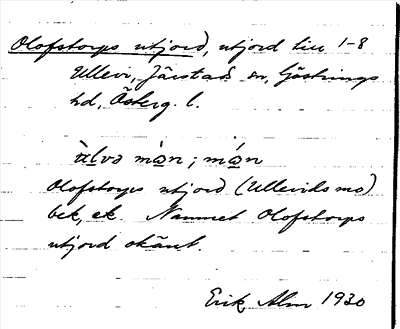 Olofstorps utjord, utjord till 1-8
Ullevi, Järstads sn, Göstrings
hd, Österg. l.
mo̲n ; mo̲n
Olofstorps utjord (Ullevids mo)
bek, ek. Namnet Olofstorps
utjord okänt.
Erik Alm 1930